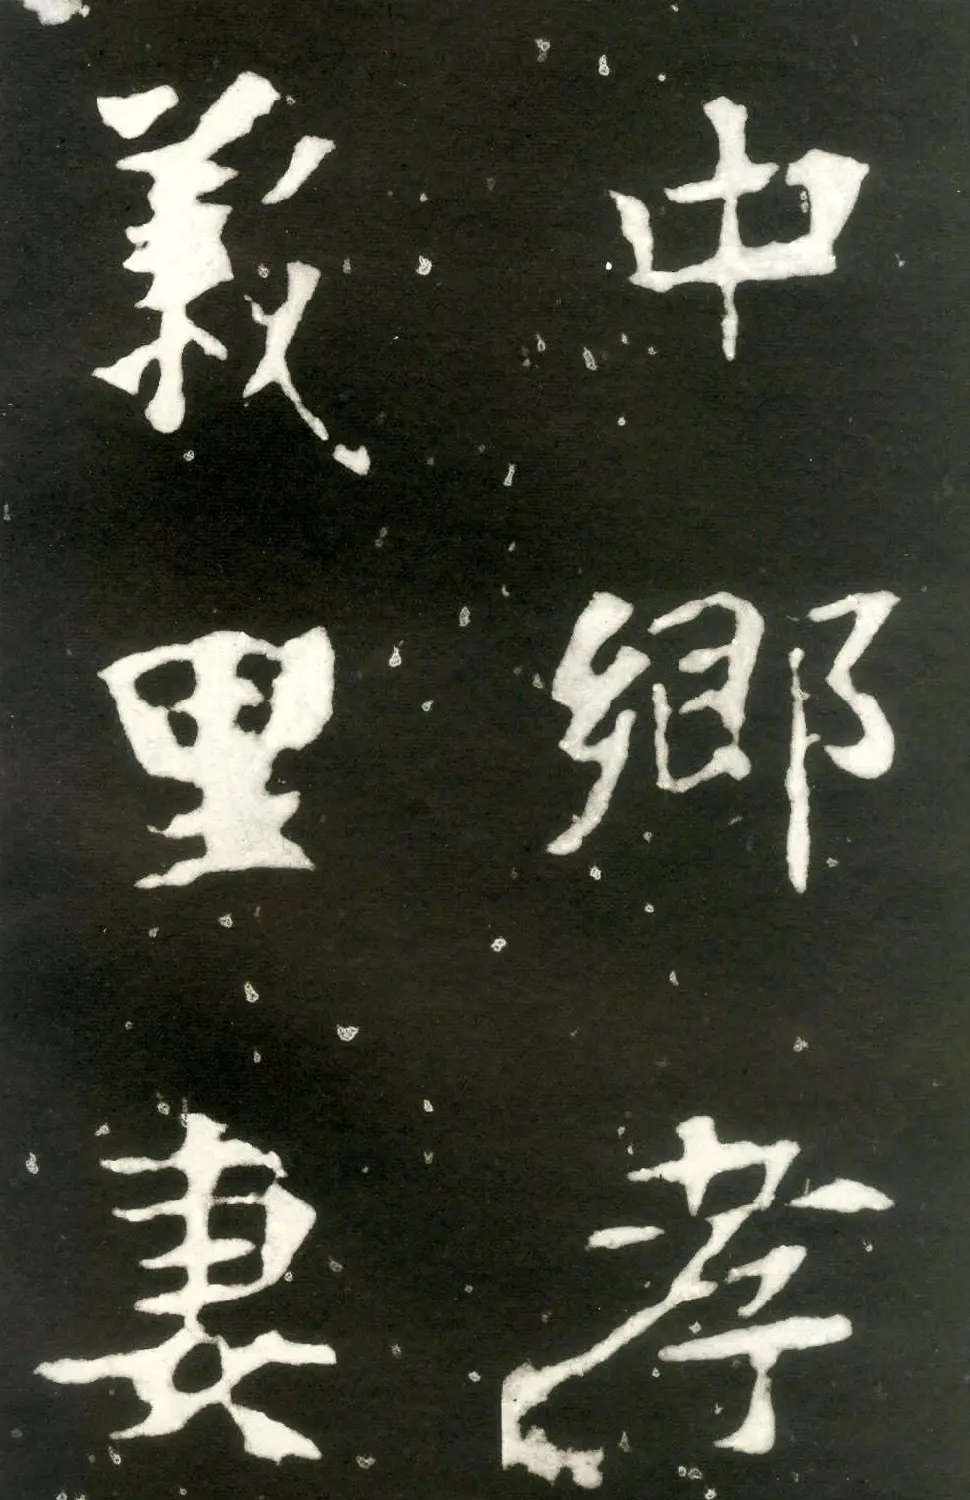 中鄉孝
義里妻